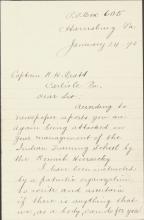 P.O. Box 605
Harrisburg Pa.
January 24, 90
Captain R. H. Pratt
Carlisle Pa.
Dear Sir:
According to
newspaper reports you are
again being attacked on
your management of the
Indian Training School by
the Romish Hierarchy
I have been instructed
by a patriotic organization
to write and ascertain
if there is anything that
we, as a body, can do for you